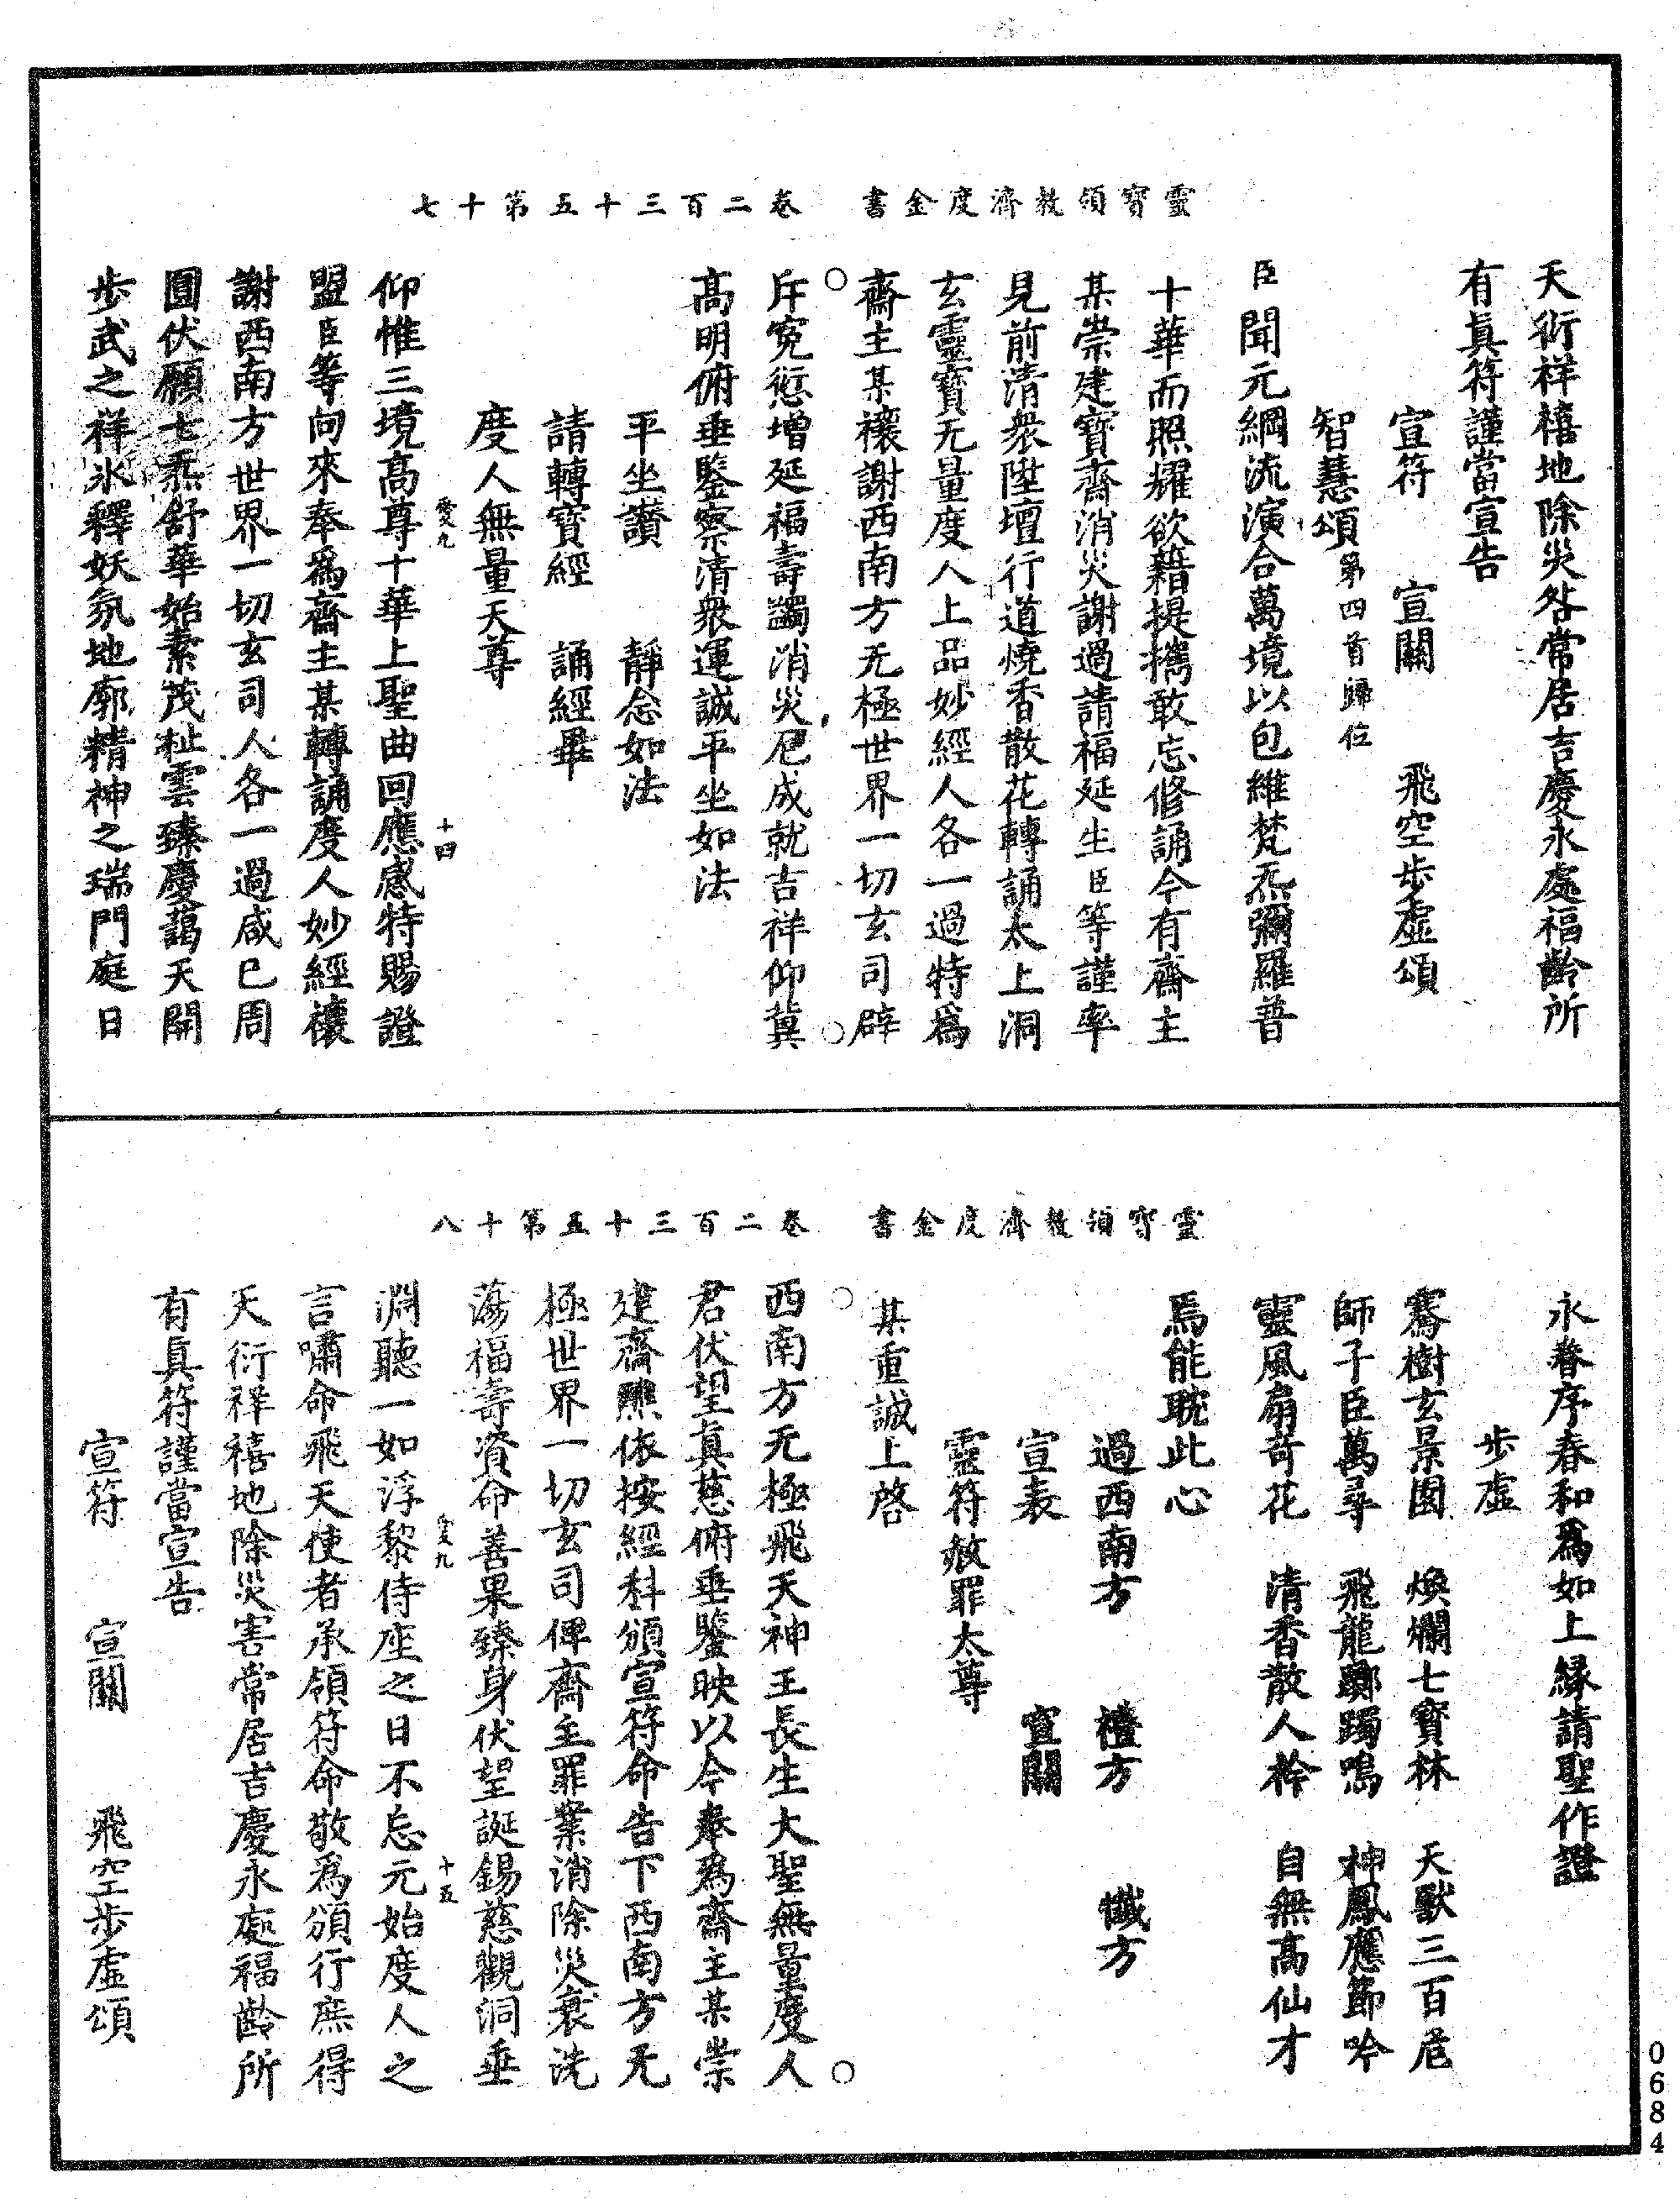 靈寶領教濟度金書　卷二百三十五第十七
天衍祥禧地除災咎常居吉慶永處福齡所
有眞符謹當宣告
宣符　宣關　飛空步虛頌
智慧頌第四首歸位
臣聞元綱流演合萬境以包維梵炁彌羅普
十華而照耀欲藉提擕敢忘修誦今有齋主
某崇建寶齋消災謝過請福延生臣等謹率
見前清衆陞壇行道燒香散花轉誦太上洞
玄靈寶无量度人上品妙經人各一過特爲
齋主某禳謝西南方无極世界一切玄司辟
斥寃愆增延福壽蠲消災厄成就吉祥仰冀
高明俯垂鑒察清衆運誠平坐如法
平坐讚　靜念如法
請轉寶經　誦經畢
度人無量天尊
愛九　十四
仰惟三境高尊十華上聖曲回應感特賜證
盟臣等向來奉爲齋主某轉誦度人妙經禳
謝西南方世界一切玄司人各一過咸已周
圓伏願七炁舒華始素茂祉雲臻慶藹天開
步武之祥氷釋妖氛地廓精神之瑞門庭日
靈寶領教濟度金書　卷二百三十五第十八
永眷序春和爲如上緣請聖作證
步虛
騫樹玄景園　煥爛七寶林　天獸三百底
師子臣萬尋　飛龍躑躅鳴　神鳳應節吟
靈風扇奇花　清香散人衿　自無高仙才
焉能耽此心
過西南方　禮方　懺方
宣表　宣關
靈符赦罪太尊
某重誠上啓
西南方无極飛天神王長生大聖無量度人
君伏望眞慈俯垂鑒映以今奉爲齋主某崇
建齋熊依按經科頒宣符命告下西南方无
極世界一切玄司俾齋主罪業消除災衰洗
蕩福壽資命善果臻身伏望誕錫慈觀洞垂
愛九　十五
淵聽一如浮黎侍座之日不忘元始度人之
言嘯命飛天使者承領符命敬爲頒行庶得
天衍祥禧地除災害常居吉慶永處福齡所
有眞符謹當宣告
宣符　宣關　飛空步虛頌
0684